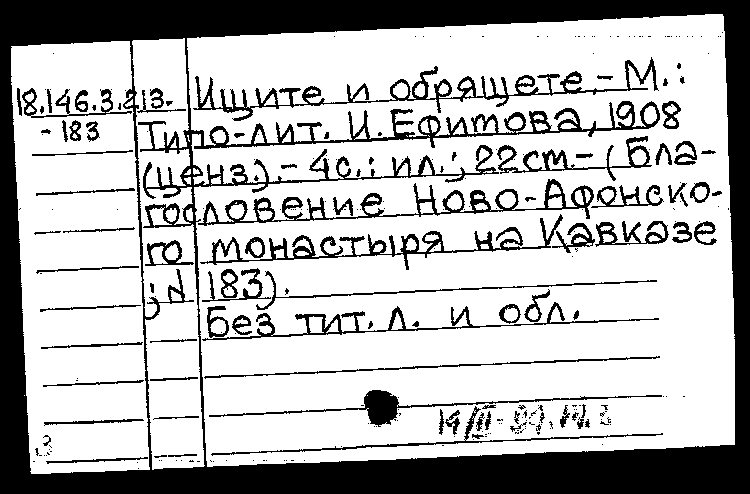 18.146.3.213. Ищите и обрящете.- М.:
-183 Типо-лит. И. Ефимова, 1908
(ценз.).- 4с.: ил.; 22cm.- (Бла-
гословение Ново-Афонско-
го монастыря на Кавказе
; N 183).
Без тит. л. и обл.
3